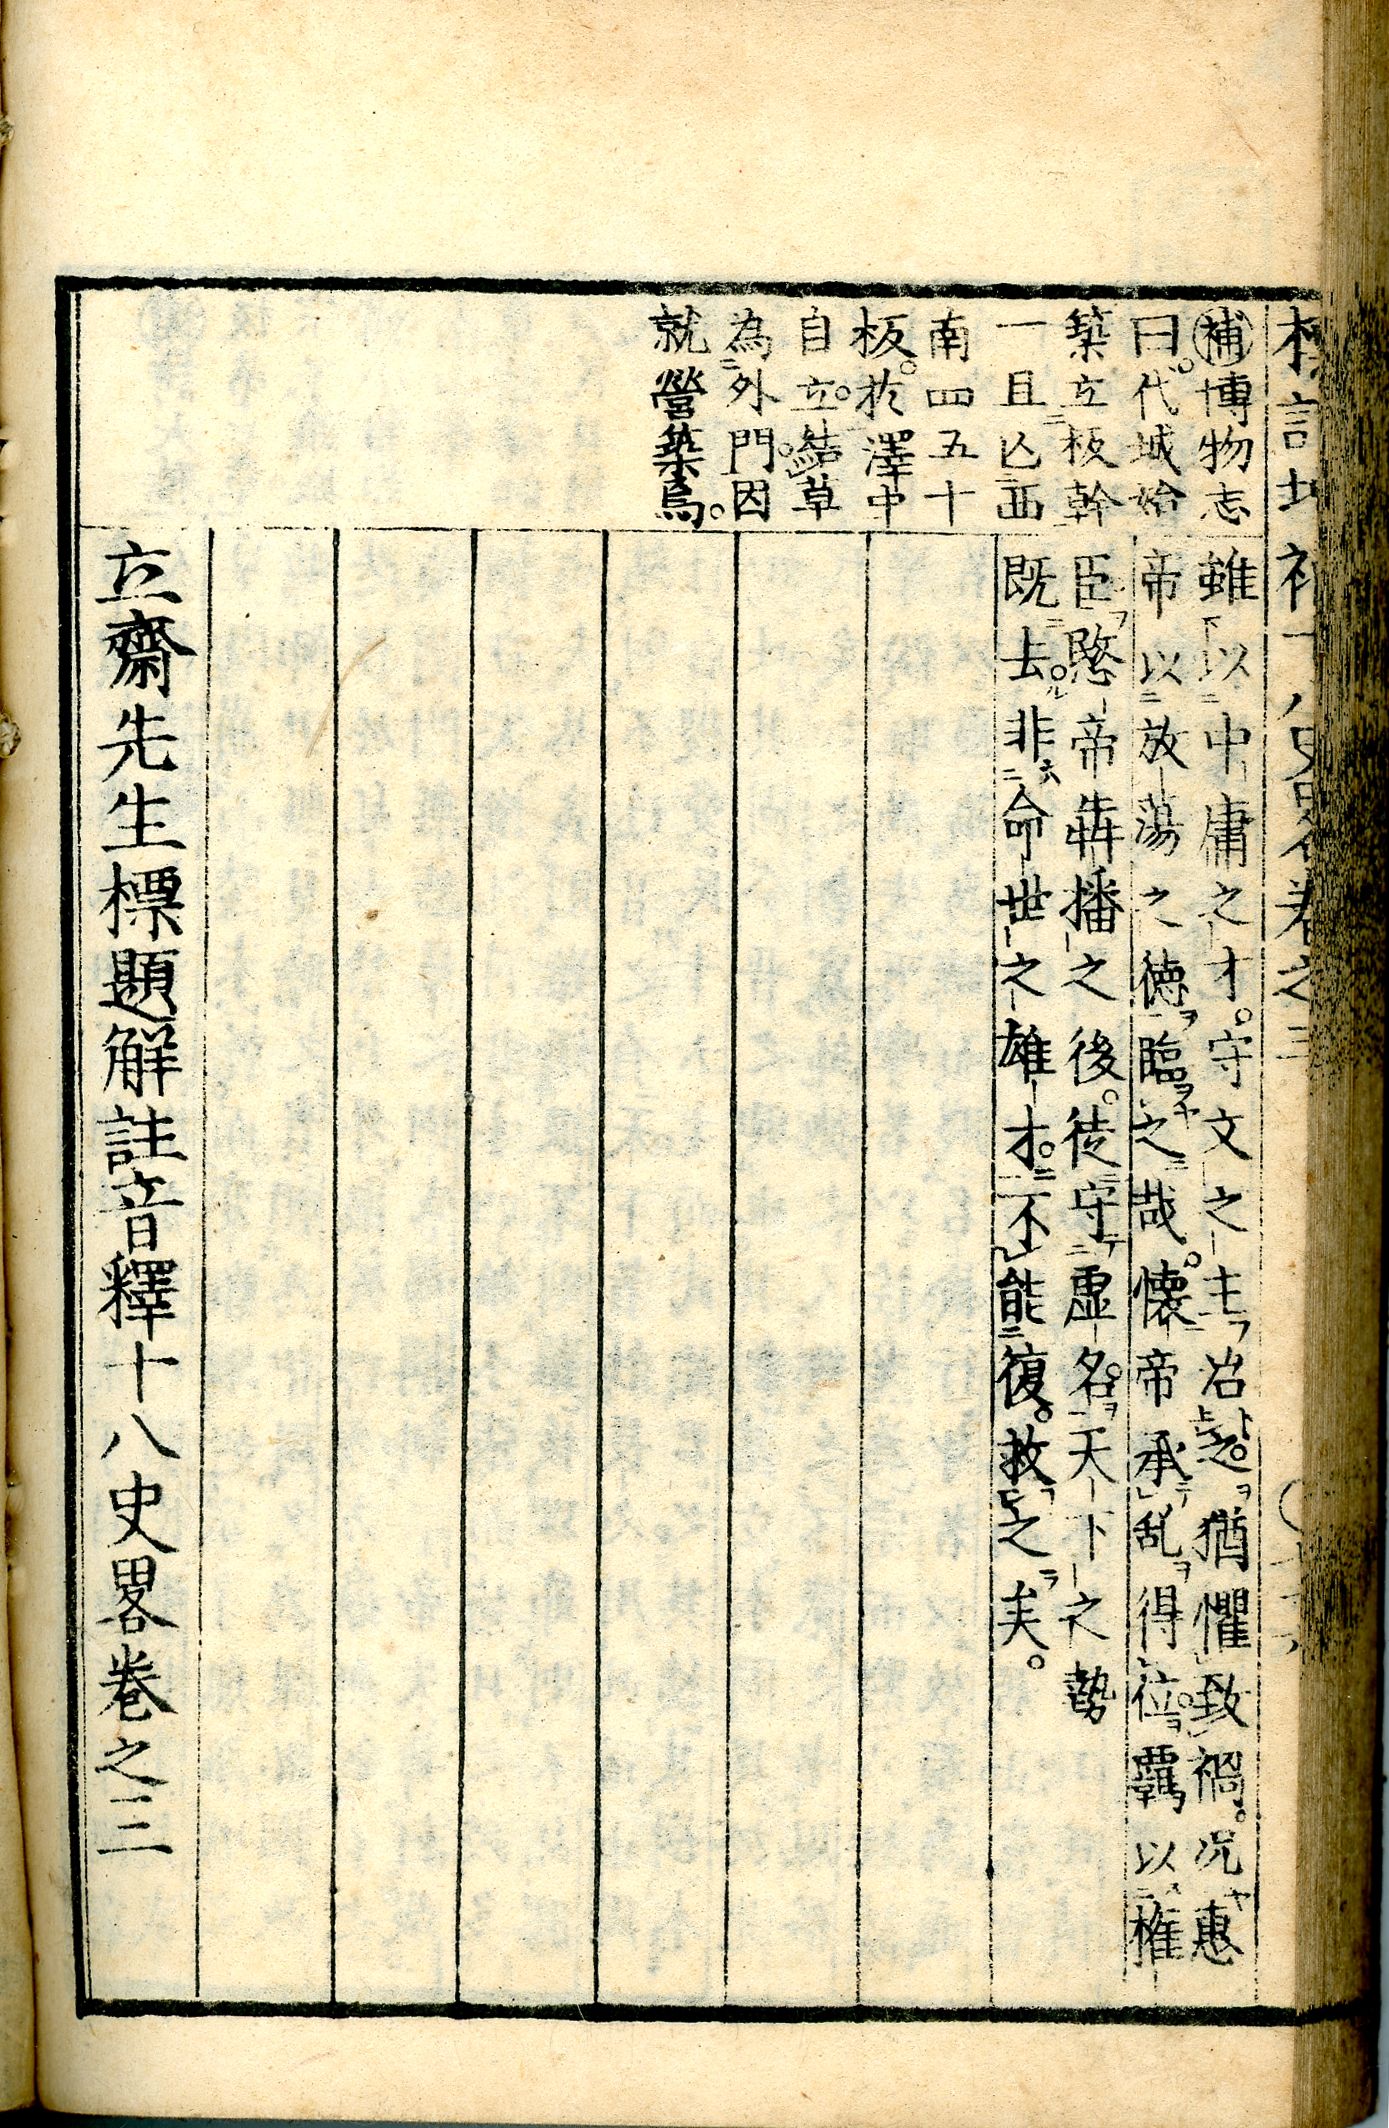 標記增補十八史畧卷之三
補博物志
曰。代城始
築立板幹
一旦亡西
南四五十
板。於澤中
自立。結草
為外門。因
就營築焉。
雖以中庸之才。守文之主治之。猶懼致禍。况惠
帝以放蕩之德臨之哉。懷帝承乱得位。羈以權
臣愍帝犇播之後。徒守虚名。天下之勢
既去。非命世之雄才。不能復救之矣。
立齋先生標題解註音釋十八史畧卷之三